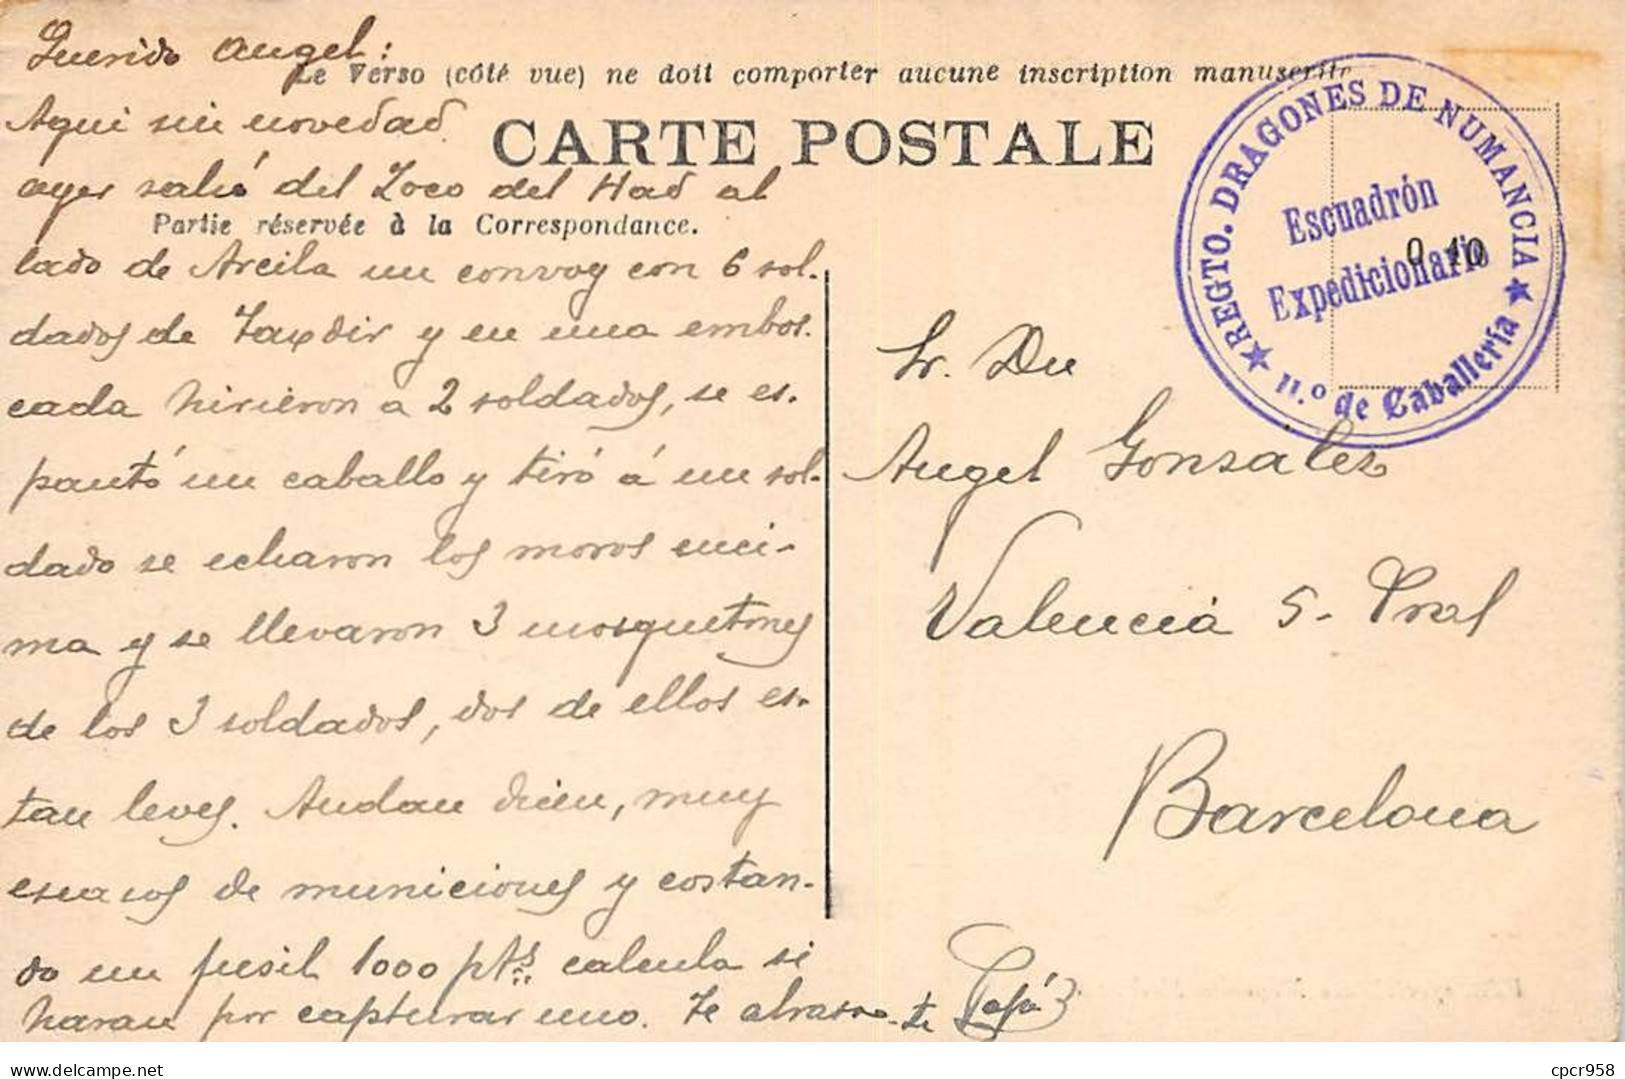 Querido Angel:
Le Verso (côté vue) ne doit comporter aucune inscription manuscrite
Aqui sin novedad
CARTE POSTALE
ayer salió del Zoco del Had al
Partie réservée à la Correspondance.
lado de Arcila un convoy con 6 sol-
dados de Taxdir y en una embos-
cada hirieron a 2 soldados, se es-
pantó un caballo y tiró á un sol-
dado se echaron los moros enci-
ma y se llevaron 3 mosquetones
de los 3 soldados, dos de ellos es-
tan leves. Andan dicen, muy
escasos de municiones y costan-
do un fusil 1000 pts calcula si
haran por capturar uno. Te abraza
REGTO. DRAGONES DE NUMANCIA
11.º de Caballería
Escuadrón
Expedicionario
0 10
Sr. Dn
Angel Gonzalez
Valencia 5- Pral
Barcelona
cpcr958